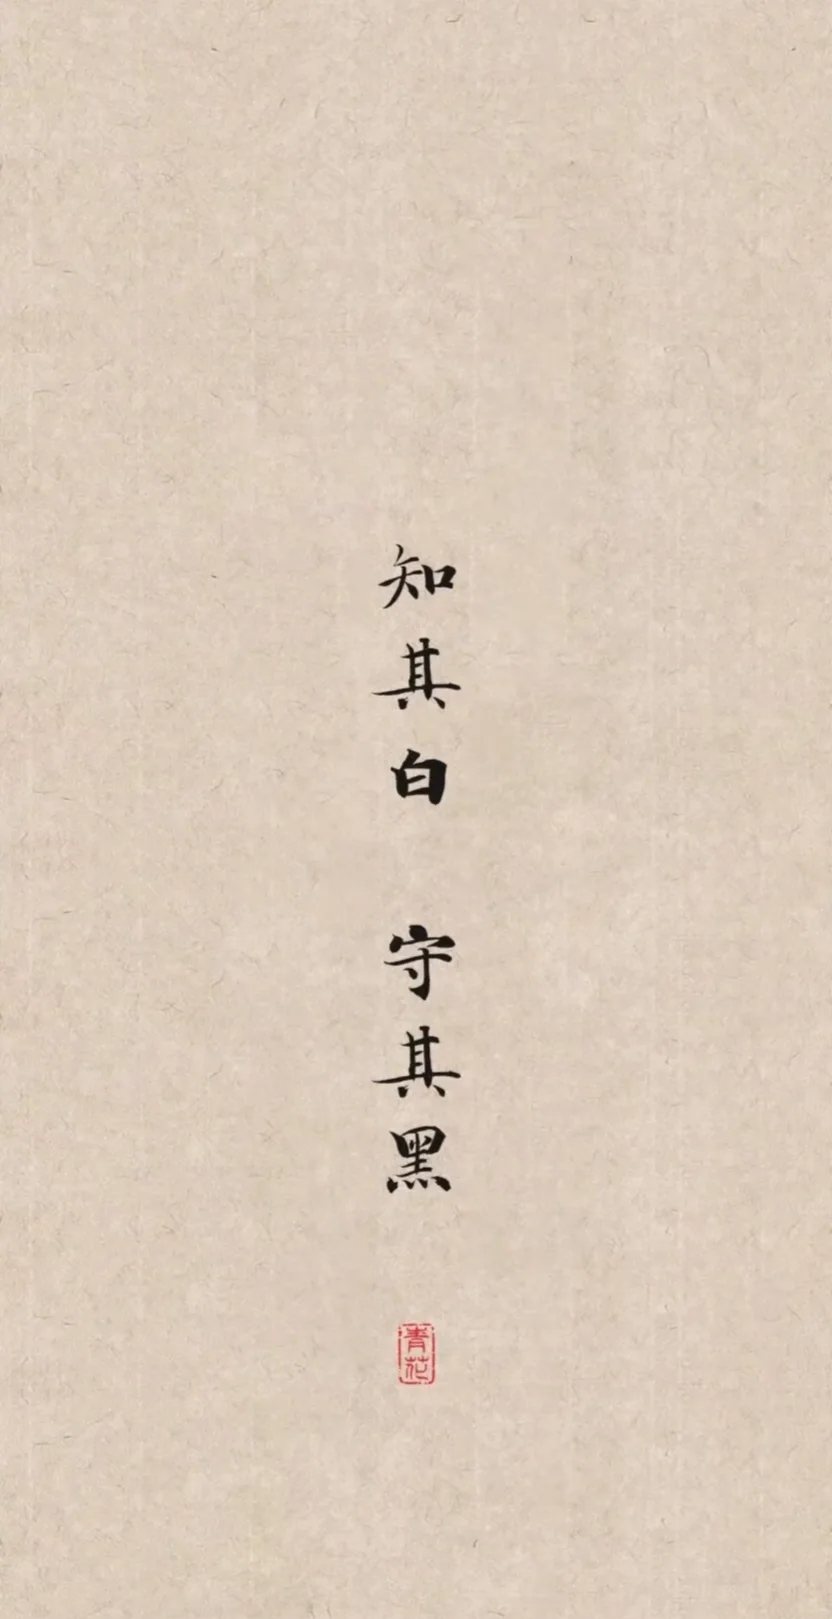 知其白 守其黑
青花